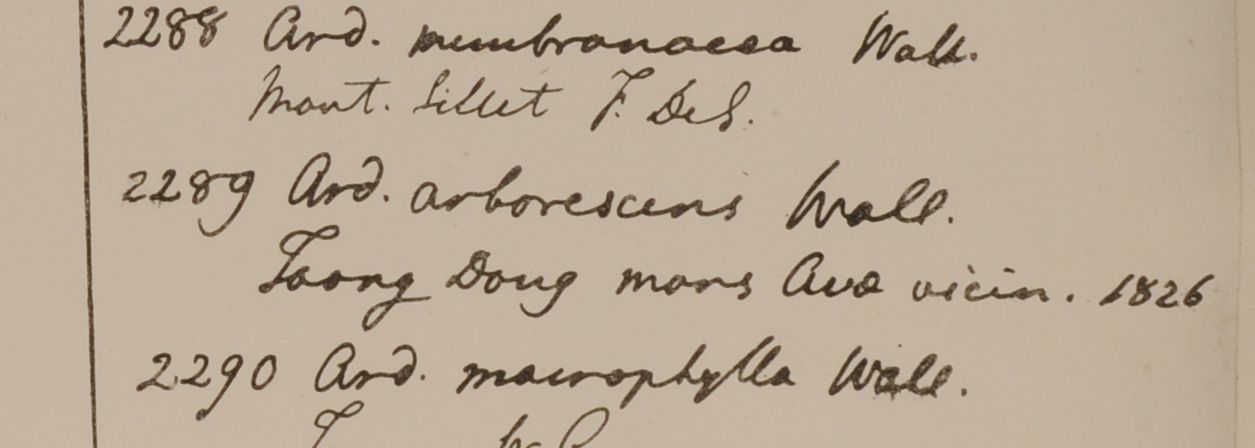 2288 Ard. membranacea Wall.
Mont. Sillet F. DeS.
2289 Ard. arborescens Wall.
Taong Doug mons Avæ vicin. 1826
2290 Ard. macrophylla Wall.